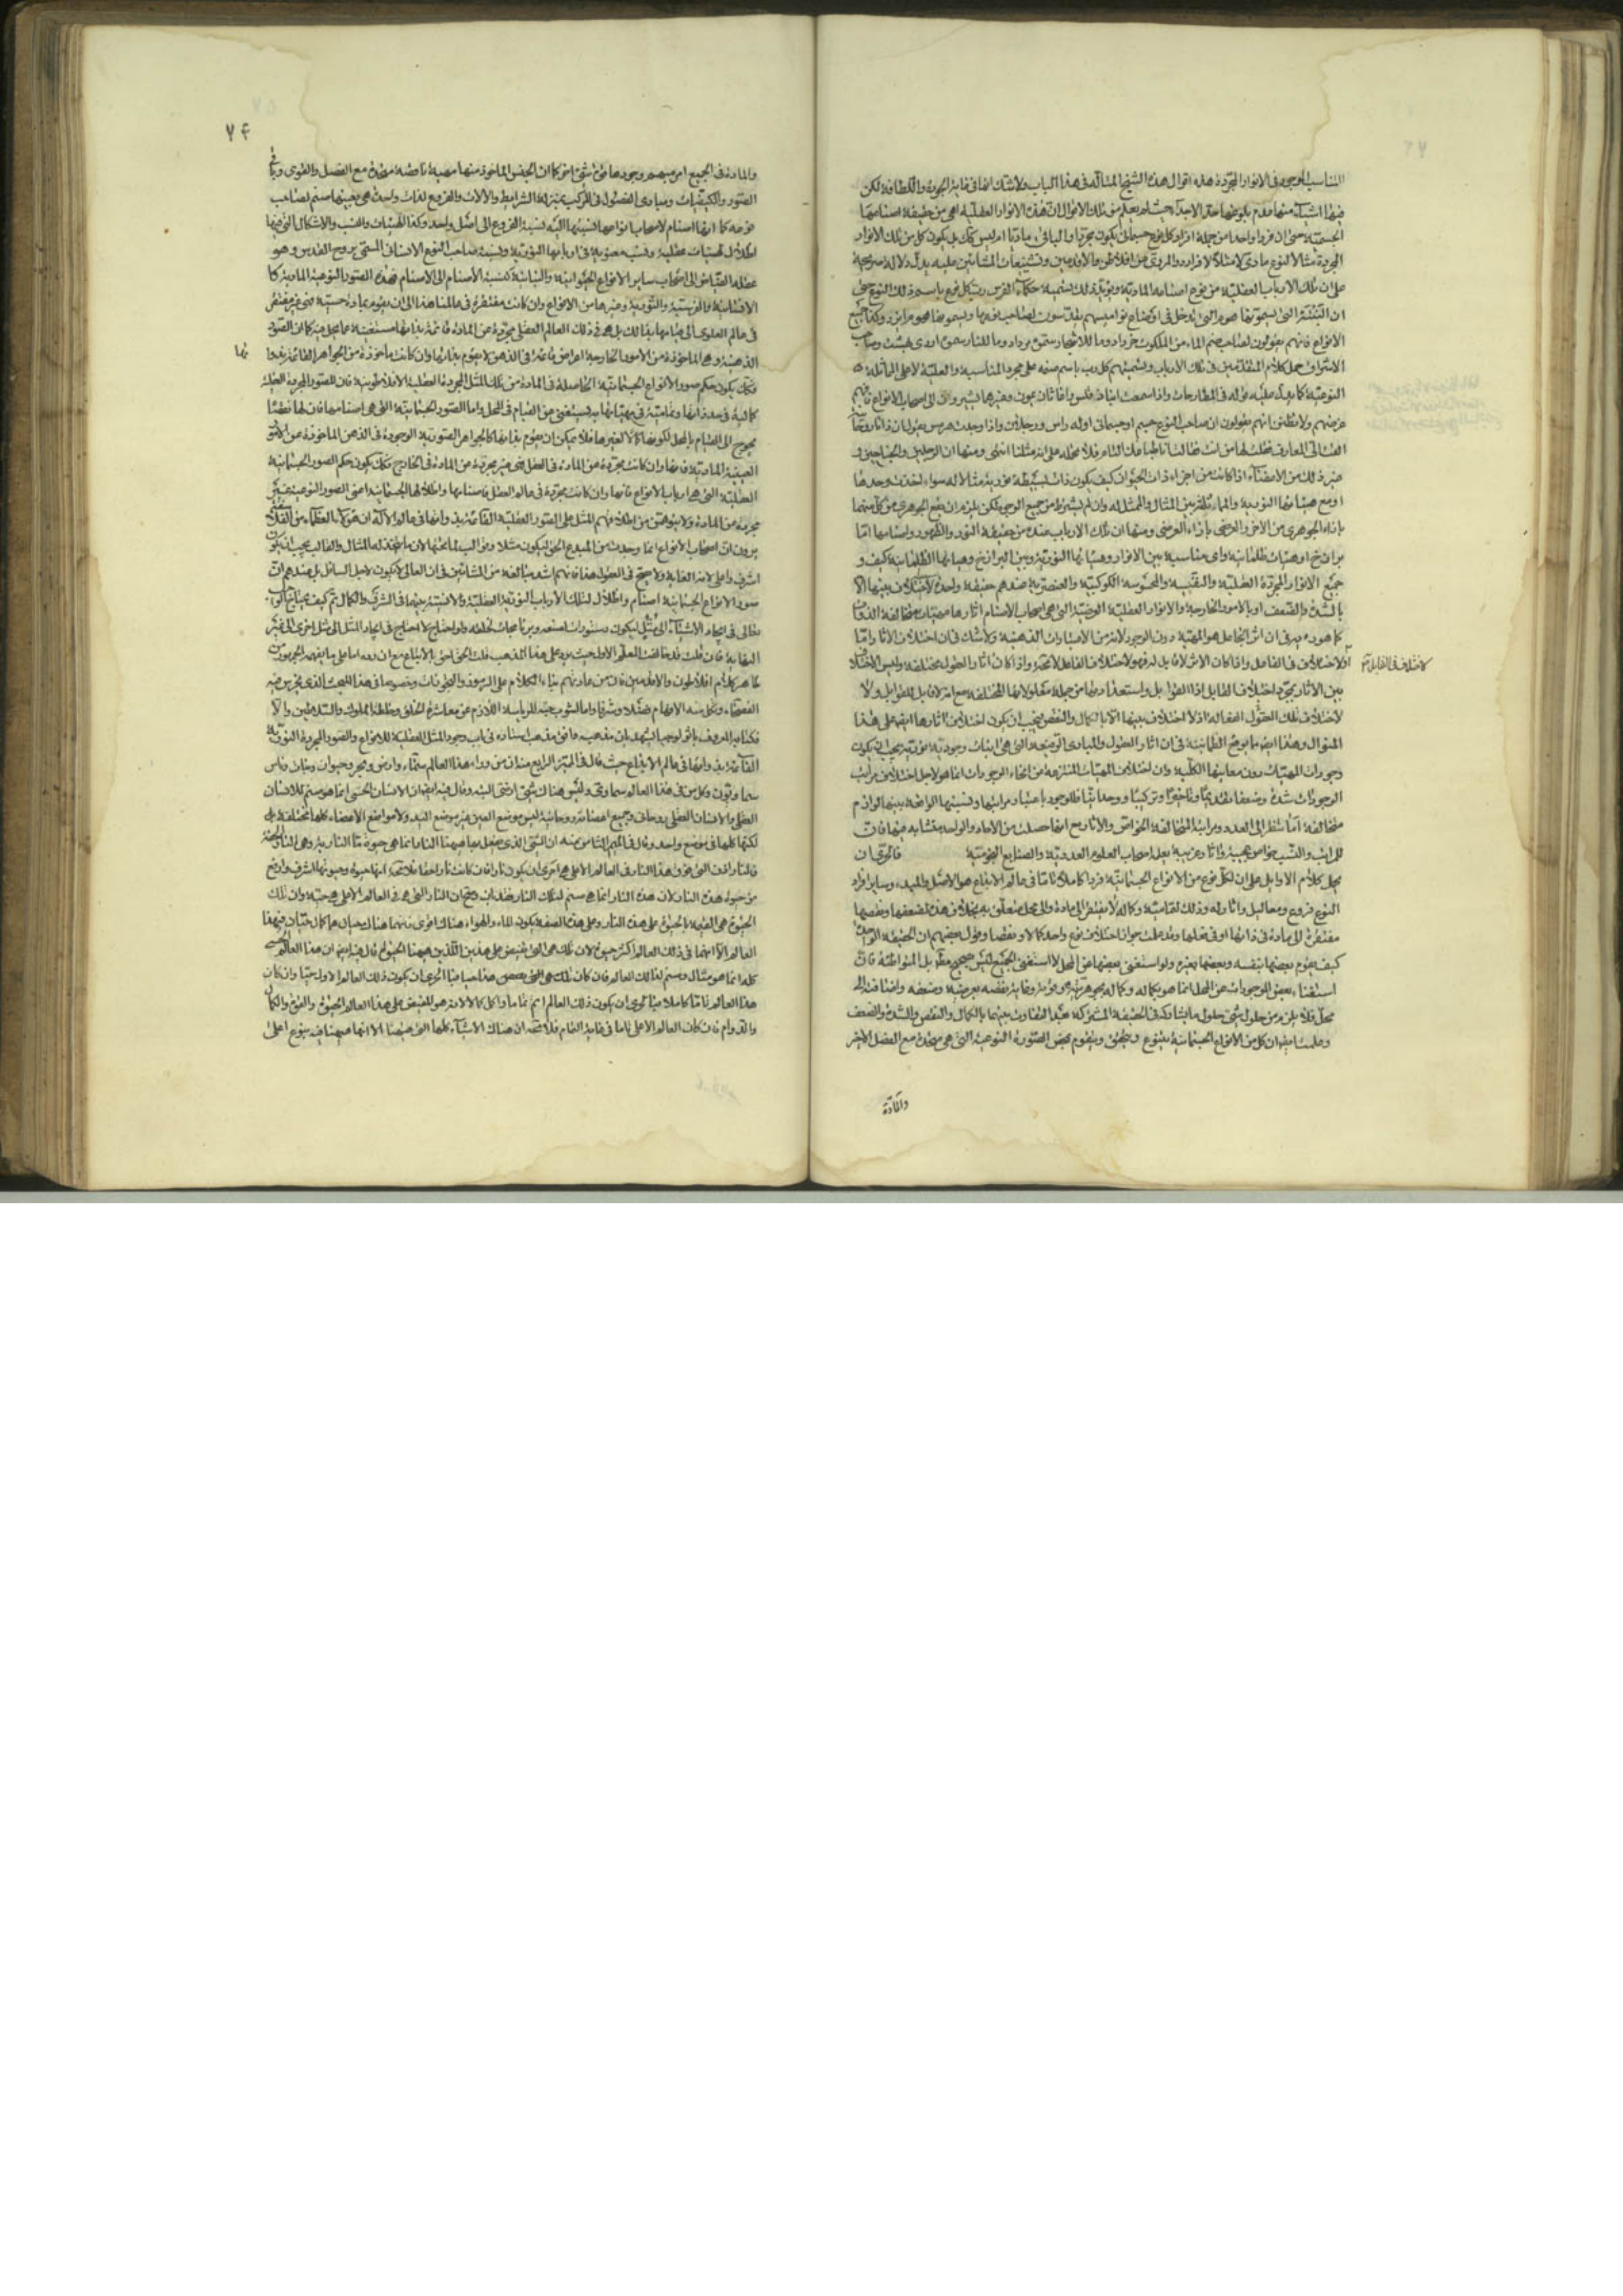 المناسب الموجود فى الانوار المجردة هذه اقوال هذا الشيخ المتاله فى هذا الباب ولاشك انها فى غاية الجودة واللطافة لكن
فيها اشياء منها عدم بلوغها حد الاجداء حيث لم يعلم من تلك الاقوال ان هذه الانوار العقلية اهى من حقيقة اصنامها
الجسمية حتى ان فردا واحدا من جملة افراد كل نوع جسمانى يكون مجردا والباقى ماديا ام ليس كذلك بل يكون كل من تلك الانوار
المجردة مثالا لنوع مادى لا مثلا لافراده والمروى عن افلاطن والاقدمين وتشنيعات المشائين عليه يدل دلالة صريحة
على ان تلك الارباب العقلية من نوع اصنامها المادية ويؤيد ذلك تسمية حكماء الفرس رب كل نوع باسم ذلك النوع حتى
ان النبتة التى يسمونها هوم التى تدخل فى اوضاع نواميسهم يقدسون لصاحب نوعها ويسمونها هوم ايزد وكذا لجميع
الانواع فانهم يقولون لصاحب صنم الماء من الملكوت خرداد وما للاشجار مرداد وما للنار اردى بهشت وصاحب
الاشراق حمل كلام المتقدمين فى تلك الارباب وتسميتهم كل رب باسم صنمه على مجرد المناسبة والعلية لا على المماثلة
النوعية كما يدل عليه قوله فى المطارحات واذا سمعت انباذقلس واغاثاذيمون وغيرهما يشيرون الى اصحاب الانواع فافهم
غرضهم ولا تظنن انهم يقولون ان صاحب النوع جسم او جسمانى او له راس ورجلان واذا وجدت هرمس يقول ان ذاتا روحانية
القت الى المعارف فقلت لها من انت فقالت انا طباعك التام فلا تحمله على انه مثلنا انتهى ومنها ان الرجلين والجناحين و
غير ذلك من الاعضاء اذا كانت من اجزاء ذات الحيوان كيف يكون ذات بسيطة نورية مثالا له سواء اخذت وحدها
او مع هيئاتها النورية والمماثلة بين المثال والممثل له وان لم يشترط من جميع الوجوه لكن يلزم ان يقع الجوهرى من كل منهما
بازاء الجوهرى من الاخر والعرضى بازاء العرضى ومنها ان تلك الارباب عنده من حقيقة النور والظهور واصنامها اما
برازخ او هيئات ظلمانية واى مناسبة بين الانوار وهيئاتها النورية وبين البرازخ وهيئاتها الظلمانية كيف و
جميع الانوار المجردة العقلية والنفسية والمحسوسة الكوكبية والعنصرية عندهم حقيقة واحدة لا اختلاف بينها الا
بالشدة والضعف او بالامور الخارجة والانوار العقلية العرضية التى هى اصحاب الاصنام اثارها مهيات متخالفة الذوات
كما هو رايه فى ان اثر الجاعل هو المهية دون الوجود لانه من الاعتبارات الذهنية ولا شك فى ان اختلاف الاثار اما
لاختلاف فى الفاعل واذا كان الاثر بلا قابل فهو لاختلاف الفاعل لا محة واذا كان اثار العقول مختلفة وليس الاختلاف
لاختلاف فى القابل او
بين الاثار بمجرد اختلاف القابل اذ القوابل واستعداداتها من جملة معلولاتها المختلفة مع انه لا قابل للقوابل ولا
لاختلاف تلك العقول الفعالة اذ لا اختلاف بينها الا بالكمال والنقص فيجب ان يكون اختلاف اثارها ايضا على هذا
المنوال وهذا ايضا ما يوضح الظمانينة فى ان اثار العقول والمبادى الرفيعة التى هى انيات وجودية نورية يجب ان يكون
وجودات المهيات دون معانيها الكلية وان اختلاف المهيات المنتزعة من انحاء الوجودات انما هو لاجل اختلاف مراتب
الوجودات شدة وضعفا وتقديما وتاخيرا وتركيبا ووحدانيا فللوجود باعتبار مراتبها ونسبتها الواقعة بينها لوازم
متخالفة اما تنظر الى العدد ومراتبه المتخالفة الخواص والاثار مع انها حصلت من الاحاد والواحد متشابه فيها فان
للمراتب والنسب خواص عجيبة واثار غريبة يعلمه اصحاب العلوم العددية والصنايع النجومية فالحرى ان
يحمل كلام الاوايل على ان لكل نوع من الانواع الجسمانية فردا كاملا تاما فى عالم الابداع هو الاصل والمبدء وساير افراد
النوع فروع ومعاليل واثار له وذلك لتماميته وكماله لا يفتقر الى مادة ولا الى محل متعلق به بخلاف هذه فانها لضعفها ونقصها
مفتقرة الى مادة فى ذاتها او فى فعلها وقد علمت جواز اختلاف نوع واحد كمالا ونقصا وقول بعضهم ان الحقيقة الواحدة
كيف يقوم بعضها بنفسه وبعضها بغيره ولو استغنى بعضها عن المحل لاستغنى الجميع ليس بصحيح مطلقا بل المتواطئة فان
استغناء بعض الموجودات عن المحل انما هو بكماله وكماله بجوهريته وقوته وغاية نقصه بعرضيته وضعفه واضافته الى
محل فلا يلزم من حلول شئ حلول ما يشاركه فى الحقيقة المشتركة بعد التفاوت بينهما بالكمال والنقص والشدة والضعف
وعلمت ايضا ان كل من الانواع الجسمانية يتنوع ويتحقق ويتقوم بمحض الصورة النوعية التى هى متحدة مع الفصل الاخير
والمادة
٧٤
والمادة فى الجميع امر مبهم وجودها قوة شئ اخر كما ان الجنس الماخوذ منها مهية ناقصة متحدة مع الفصل والقوى وباقى
الصور والكيفيات ومبادى الفصول فى المركب بمنزلة الشرايط والالات والفروع لذات واحدة هى بعينها صنم لصاحب
نوعه كما انها اصنام لاصحاب انواعها نسبتها اليه نسبة الفروع الى اصل واحد وكذا الهيئات والنسب والاشكال التى فيها
اظلال لهيئات عقلية ونسب معنوية فى اربابها النورية ونسبة صاحب النوع الانسانى المسمى بروح القدس وهو
عقله الفياض الى اصحاب ساير الانواع الحيوانية والنباتية كنسبة الاصنام الى الاصنام فهذه الصور النوعية المادية كا
الانسانية والفرسية والثورية وغيرها من الانواع وان كانت مفتقرة فى عالمنا هذا الى ان يقوم بمادة حسية فهى غير مفتقر
فى عالم العلوى الى قيامها بذلك بل هى فى ذلك العالم العقلى مجردة عن المادة قائمة بذاتها مستغنية عما يحل فيه كما ان الصور
الذهنية وهى الماخوذة من الامور الخارجية اعراض قائمة فى الذهن لا يقوم بذاتها وان كانت ماخوذة من الجواهر القائمة بذوا
تها
فكذلك يكون حكم صور الانواع الجسمانية الحاصلة فى المادة من تلك المثل المجردة العقلية الافلاطونية فان للصور المجردة العقلية
كمالية فى حد ذاتها وتمامية فى مهياتها به يستغنى عن القيام فى المحل واما الصور الجسمانية التى هى اصنامها فان لها نقصا
يحوج الى القيام بالمحل لكونها كمالا لغيرها فلا يمكن ان يقوم بذاتها كالجواهر الصورية الوجودة فى الذهن الماخوذة من الامور
العينية المادية فانها وان كانت مجردة عن المادة فى العقل فهى غير مجردة عن المادة فى الخارج فكذلك يكون حكم الصور الجسمانية
العقلية التى هى ارباب الانواع فانها وان كانت مجردة فى عالم العقل فاصنامها واظلالها الجسمانية اعنى الصور النوعية غير
مجردة من المادة ولا يتوهمن من اطلاقهم المثل على الصور العقلية القائمة بذواتها فى عالم الالة ان هؤلاء العظماء من الفلاسفة
يرون ان اصحاب الانواع انما وجدت من المبدع الحق ليكون مثلا وقوالب لما تحتها لان ما يتخذ له المثال والقالب يجب ان يكون
اشرف واعلى لانه الغاية ولا يصح فى العقول هذا فانهم اشد مبالغة من المشائين فى ان العالى لا يكون لاجل السافل بل عندهم ان
صور الانواع الجسمانية اصنام واظلال لتلك الارباب النورية العقلية ولا نسبة بينهما فى الشرف والكمال ثم كيف يحتاج الواجب
تعالى فى ايجاد الاشياء الى مثل ليكون دستورات لصنعه وبرنامجات لخلقه ولو احتاج لاحتاج فى ايجاد المثل الى مثل اخرى الى غير
النهاية فان قلت قد خالفت المعلم الاول حيث يرد على هذا المذهب قلت الحق احق بالاتباع مع ان رده اما على ما يفهمه الجمهور من
ظاهر كلام افلاطون والاقدمين فان من عادتهم بناء الكلام على الرموز والتجوزات وخصوصا فى هذا المبحث الذى يخرس فيه
الفصحاء وتكل منه الافهام فضلا وشرفا واما لشوب حبه للرياسة اللازم عن معاشرة الخلق وخلطة الملوك والسلاطين والا
فكتابه المعروف باثولوجيا يشهد بان مذهبه وافق مذهب استاده فى باب وجود المثل العقلية للانواع والصور المجردة النورية
القائمة بذواتها فى عالم الابداع حيث قال فى الميمر الرابع منه ان من وراء هذا العالم سماء وارض وبحر وحيوان ونبات وناس
سماويون وكل من فى هذا العالم سماوى وليس هناك شئ ارضى البتة وقال فيه ايضا ان الانسان الحسى انما هو صنم للانسان
العقلى والانسان العقلى روحانى وجميع اعضائه روحانية ليس موضع العين غير موضع اليد ولا مواضع الاعضاء كلها مختلفة
لكنها كلها فى موضع واحد وقال فى الميمر الثامن منه ان الشئ الذى يفعل بها ههنا النار انما هى حيوة ما النارية وهى النار الحقة
فالنار اذن التى فوق هذه النار فى العالم الاعلى هى احرى بان يكون نارا فان كانت نارا حقا فلا محة انها حية وحيوتها اشرف وارفع
من حيوة هذه النار لان هذه النار انما هى صنم لتلك النار فقد بان وصح ان النار التى هى فى العالم الاعلى هى حية وان تلك
الحيوة هى القيمة بالحيوة على هذه النار وعلى هذه الصفة يكون الماء والهواء هناك اقوى فانهما هناك حيان كما كانا حيتان فى هذا
العالم الا انهما فى ذلك العالم اكثر حيوة لان تلك هى التى تفيض على هذين اللذين ههنا الحيوة ثم قال فيه ايضا ان هذا العالم الحسى
كله انما هو مثال وصنم لذلك العالم فان كان هذا العالم حيا فبالحرى ان يكون ذلك العالم الاول حيا وان كان
هذا العالم تاما كاملا فبالحرى ان يكون ذلك العالم اتم تماما واكمل كمالا لانه هو المفيض على هذا العالم الحيوة والقوة والكمال
والدوام فان كان العالم الاعلى تاما فى غاية التمام فلا محة ان هناك الاشياء كلها التى ههنا الا انها فيه بنوع اعلى